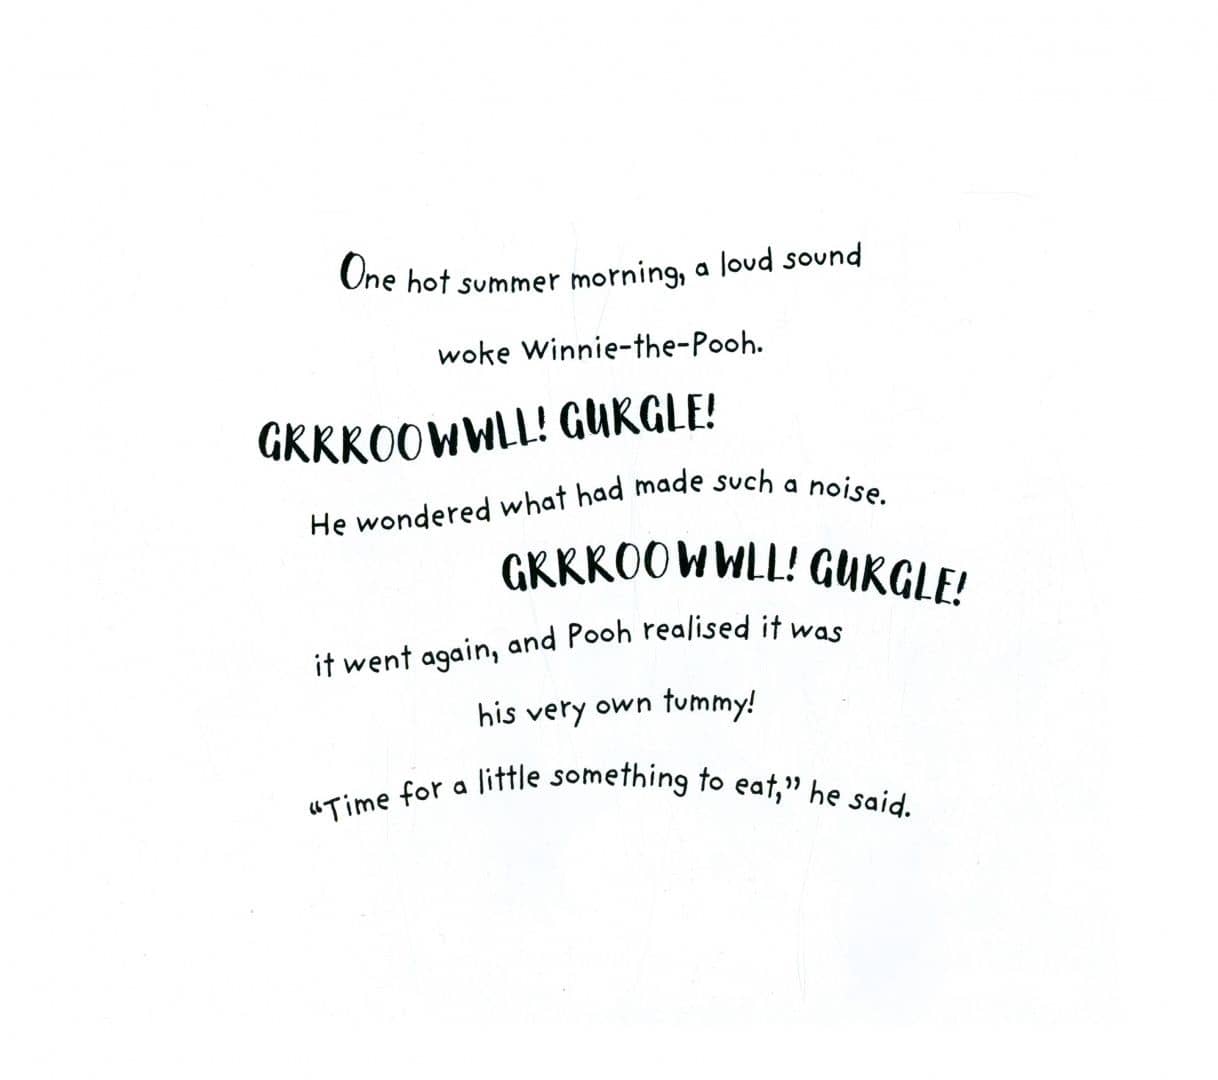 One hot summer morning, a loud sound
woke Winnie-the-Pooh.
GRRROOWWLL! GURGLE!
He wondered what had made such a noise.
GRRROOWWLL! GURGLE!
it went again, and Pooh realised it was
his very own tummy!
“Time for a little something to eat,” he said.